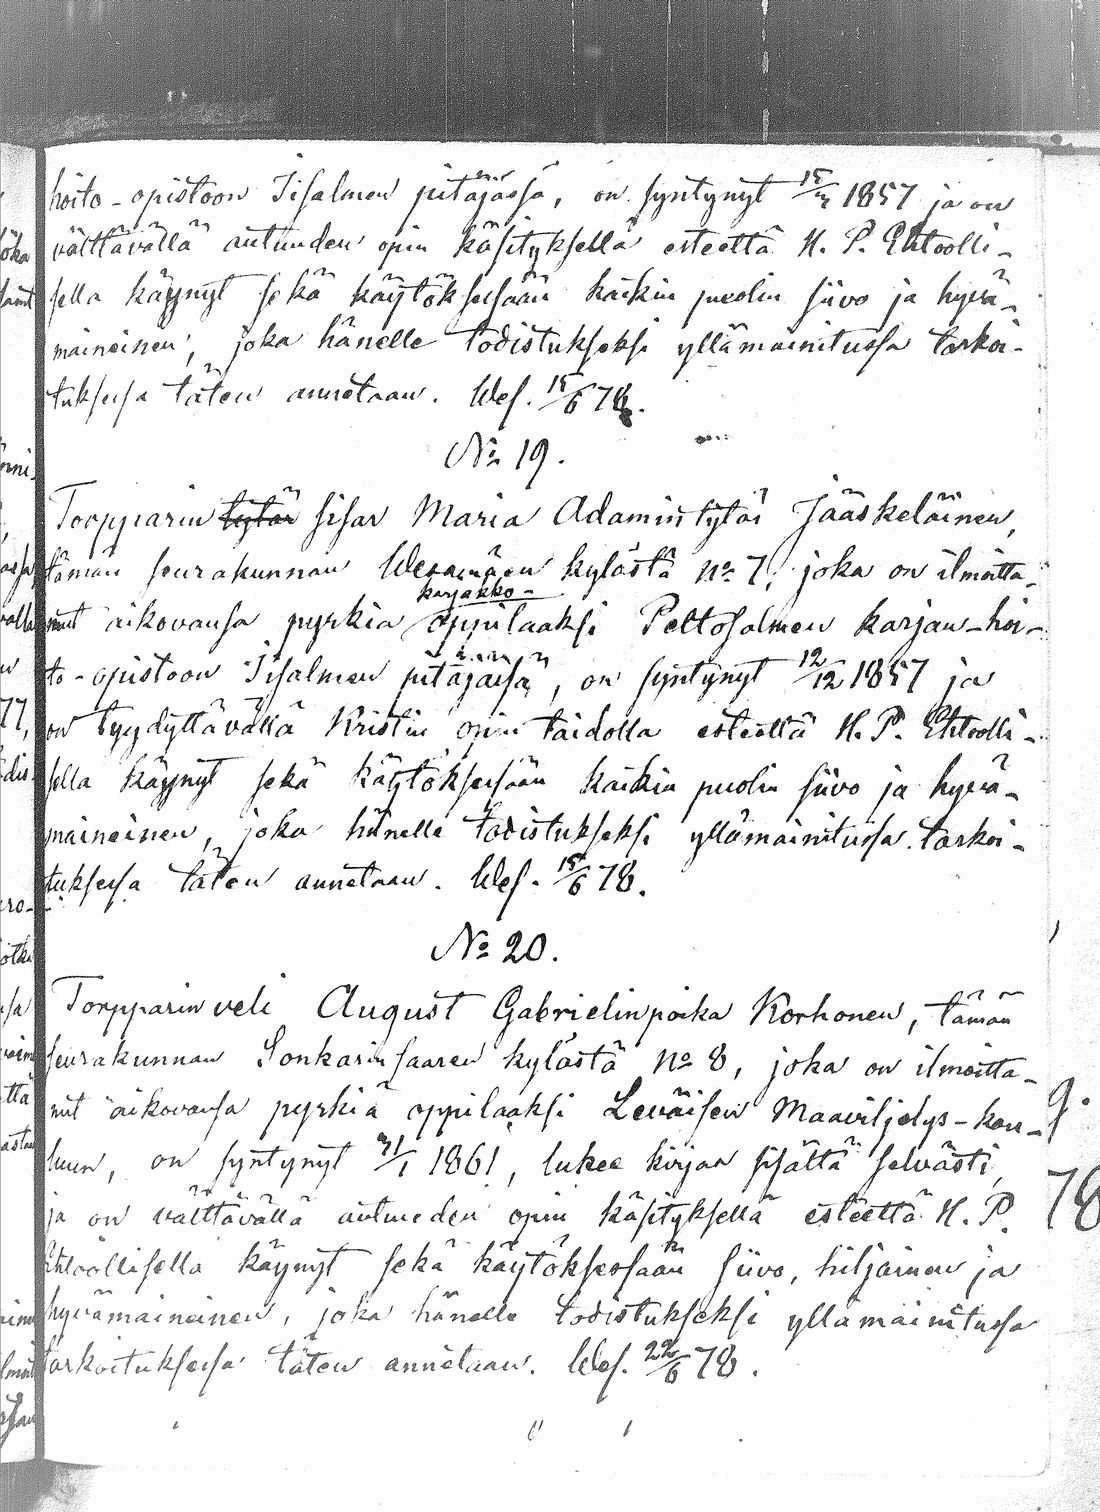 hoito-opistoon Iisalmen pitäjässä, on syntynyt 1857 ja on
välttävällä autuuden opin käsityksellä esteettä H. P. Ehtoolli-
sella käynyt sekä käytöksessään kaikin puolin siivo ja hyvä-
maineinen, joka hänelle todistukseksi yllämainitussa tarkoi-
tuksessa täten annetaan. Wes. 15/6 78.
No 19.
Torpparin tytär sisar Maria Adamintytär Jääskeläinen,
tämän seurakunnan kylästä no 7, joka on ilmoitta-
karjakko-
nut aikovansa pyrkiä oppilaaksi Peltosalmen karjan-hoi-
to-opistoon Iisalmen pitäjässä, on syntynyt 12/12 1857 ja
on tyydyttävällä Kristin opin taidolla esteettä H. P. Ehtoolli-
sella käynyt sekä käytöksessään kaikin puolin siivo ja hyvä-
maineinen, joka hänelle todistukseksi yllämainitussa tarkoi-
tuksessa täten annetaan. Wes. 15/6 78.
No 20.
Torpparin veli August Gabrielinpoika Korhonen, tämän
seurakunnan Sonkarinsaaren kylästä no 8, joka on ilmoitta-
nut aikovansa pyrkiä oppilaaksi Leväisen Maaviljelys-kou-
luun, on syntynyt 1861, lukee kirjan sisältä selvästi,
ja on välttävällä autuuden opin käsityksellä esteettä H. P.
Ehtoollisella käynyt sekä käytöksessään siivo, hiljainen ja
hyvämaineinen, joka hänelle todistukseksi yllämainitussa
tarkoituksessa täten annetaan. Wes. 22/6 78.
78